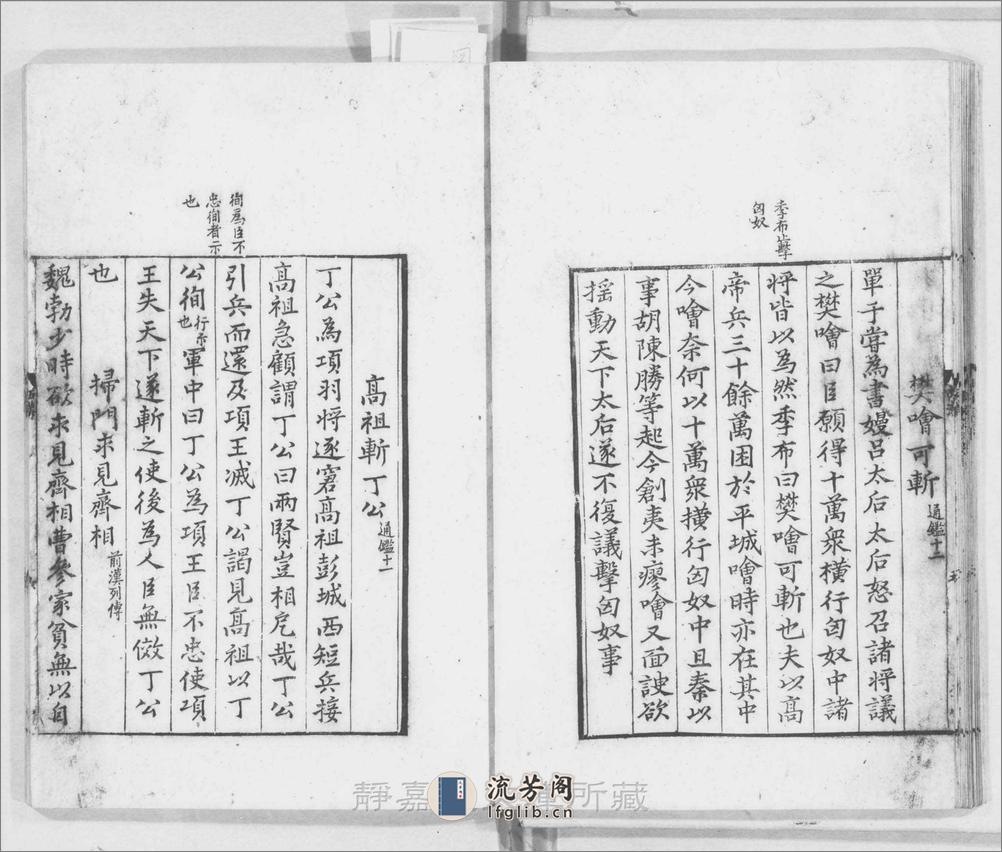 季布止擊
匈奴
樊噲可斬 通鑑十二
單于嘗為書嫚呂太后太后怒召諸將議
之樊噲曰臣願得十萬衆橫行匈奴中諸
將皆以為然季布曰樊噲可斬也夫以高
帝兵三十餘萬困於平城噲時亦在其中
今噲奈何以十萬衆横行匈奴中且秦以
事胡陳勝等起今創夷未瘳噲又面諛欲
揺動天下太后遂不復議擊匈奴事
徇為臣不
忠徇者示
也
高祖斬丁公 通鑑十一
丁公為項羽将逐窘高祖彭城西短兵接
高祖急顧謂丁公曰兩賢豈相戹哉丁公
引兵而還及項王滅丁公謁見高祖以丁
公徇行示也軍中曰丁公為項王臣不忠使項
王失天下遂斬之使後為人臣無傚丁公
也
掃門求見齊相 前漢列傳
魏勃少時欲求見齊相曹參家貧無以自
靜嘉
所藏
流芳阁
lfglib.cn